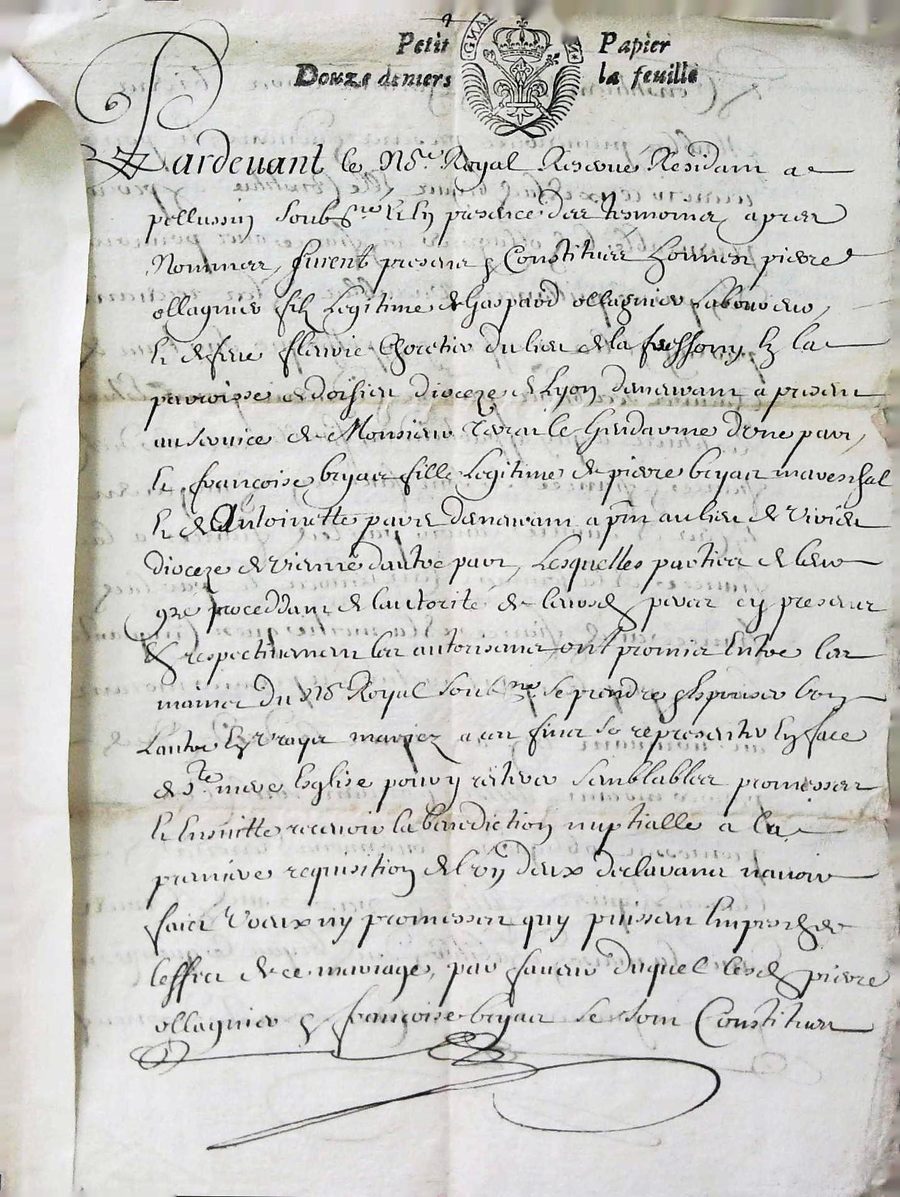 Petit Papier
Douze deniers la feuille
Pardevant le No.re Royal Reservé Residant a
pellussin soubs.né Et En presence des tesmoins apres
Nommes, furent presens & Constitues honnes pierre
ollagnier fils Legitime de Gaspard ollagnier Laboureur,
Et de feue fleurie Choretier du lieu de la En la
parroisse de doisieu dioceze de Lyon demeurant a present
au service de Monsieur le Gendarme d'une part,
Et françoise bryar fille Legitime de pierre bryar mareschal
Et de Antoinette demeurant a pnt au lieu de
dioceze de Vienne dautre part, Lesquelles parties de leur
gre proceddant de lautorite de leursd peres cy presens
& respectivement les autorisans, ont promis Entre les
mains du No.re Royal soub.né se prendre & Espouser lun
Lautre En vrays mariez a ces fins se representer En face
de S.te mere Eglise pour y reiterer semblables promesses
Et Ensuitte recevoir la benediction nuptialle a la
premiere requisition de l'un deux declarans navoir
faict Voeux ny promesses quy puissent Empescher
leffect de ce mariage, par faveur duquel lesd pierre
ollagnier & françoise bryar se sont Constitues